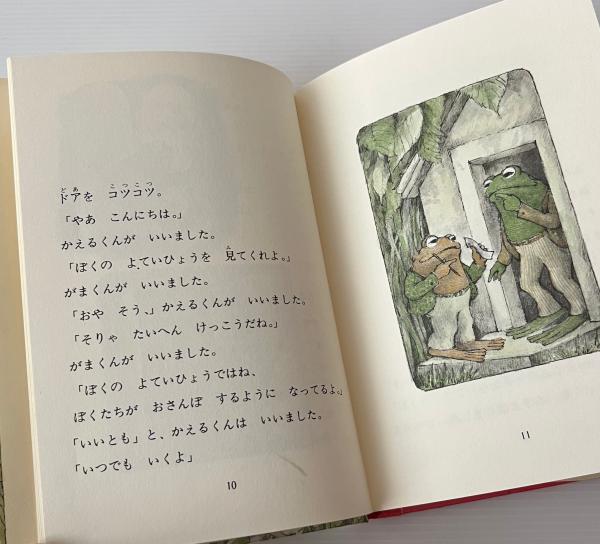 ドアを　コツコツ。
「やあ　こんにちは。」
かえるくんが　いいました。
「ぼくの　よていひょうを　見てくれよ。」
がまくんが　いいました。
「おや　そう、」かえるくんが　いいました。
「そりゃ　たいへん　けっこうだね。」
がまくんが　いいました。
「ぼくの　よていひょうではね、
ぼくたちが　おさんぽ　するように　なってるよ。」
「いいとも」と、かえるくんは　いいました。
「いつでも　いくよ」
10
11